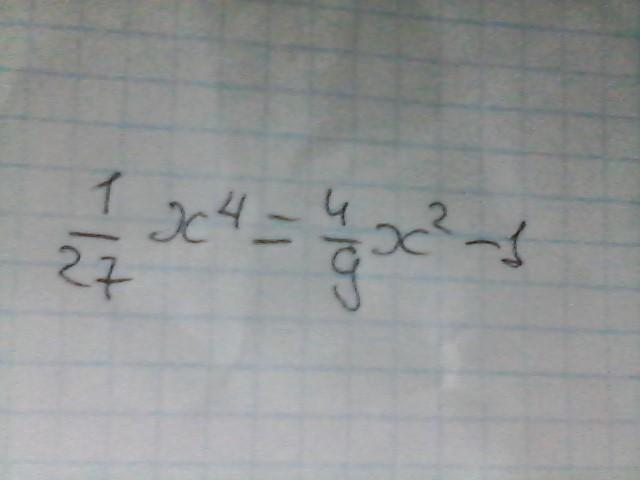 1/27 x⁴ = 4/9 x² - 1